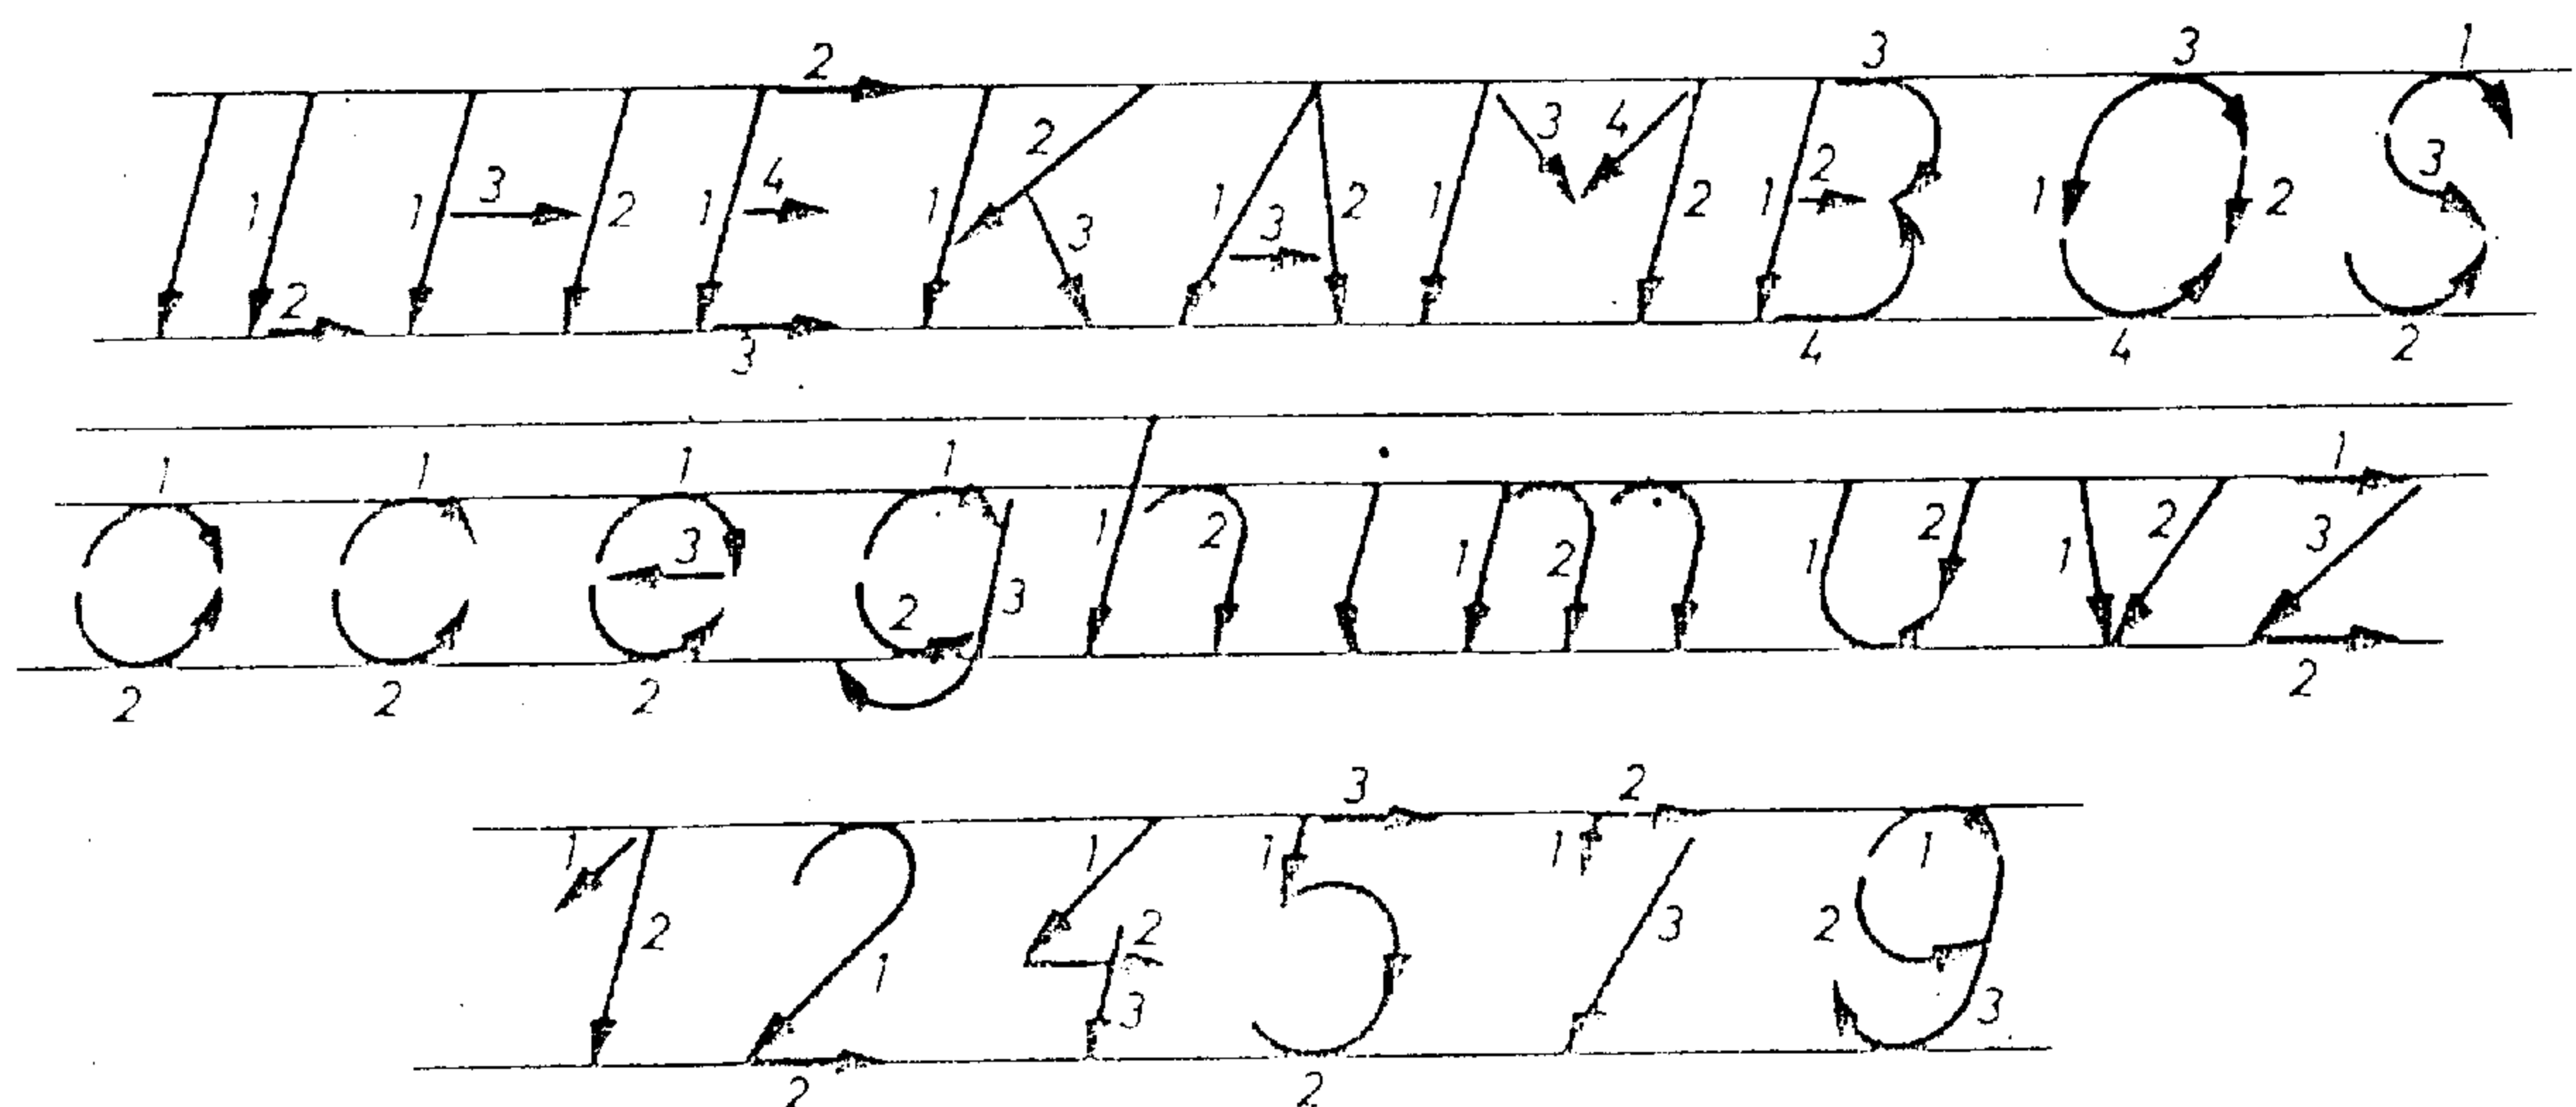 I L H E K A M B O S
o c e g h i n m u v z
1 2 4 5 7 9